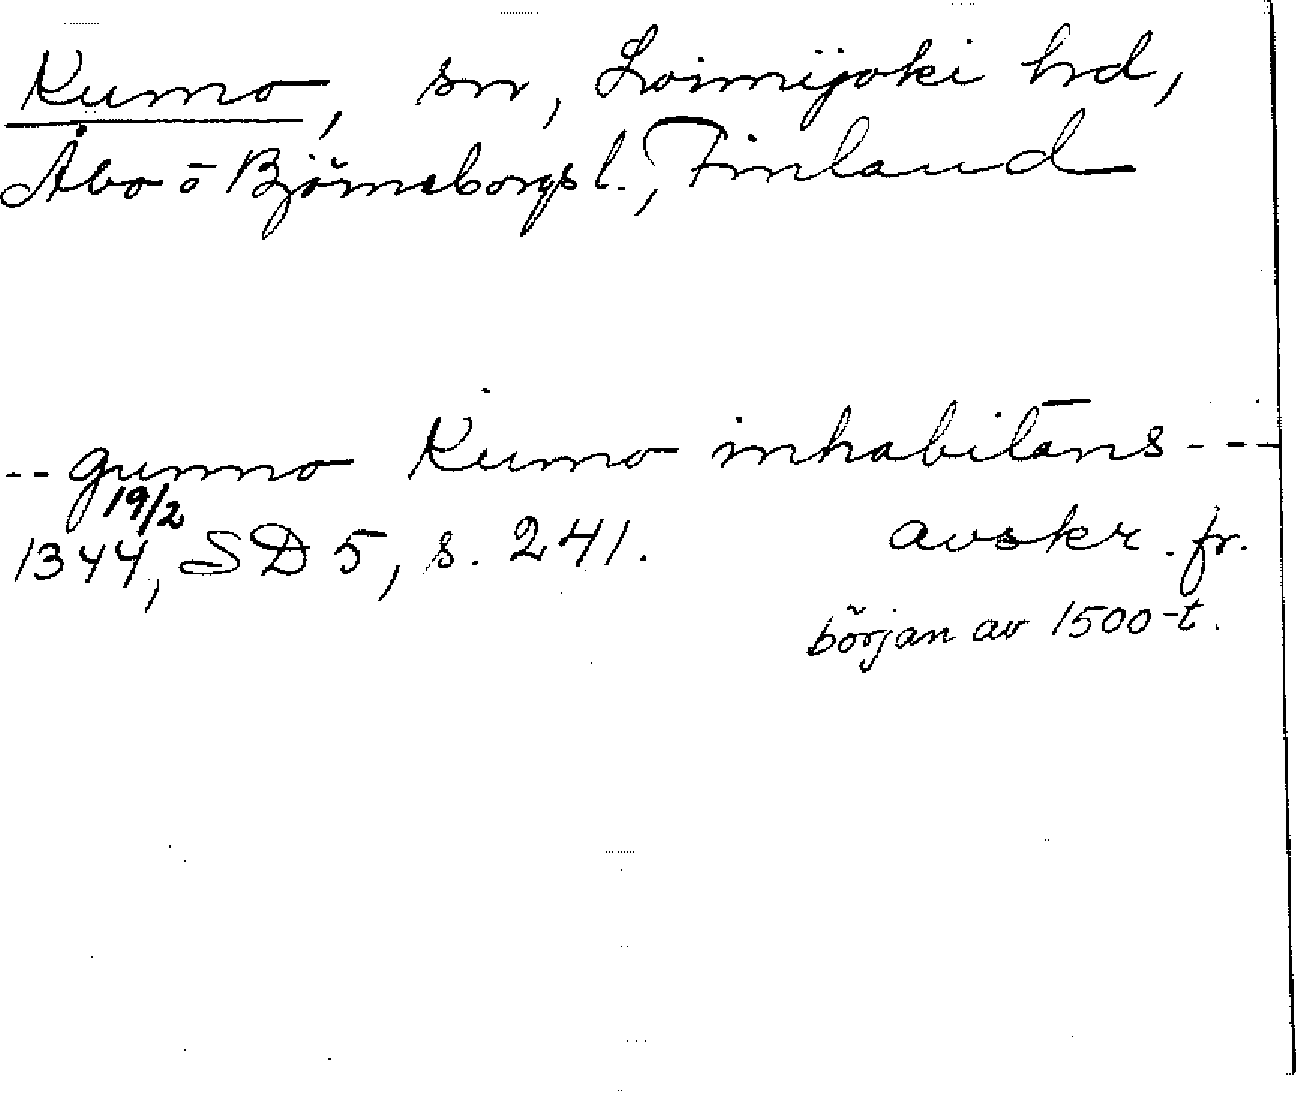 Kumo, sn, Loimijoki hd,
Åbo o Björneborgs l., Finland
-- gunno Kumo inhabitans ---
19/2
1344, SD 5, s. 241. avskr. fr.
början av 1500-t.